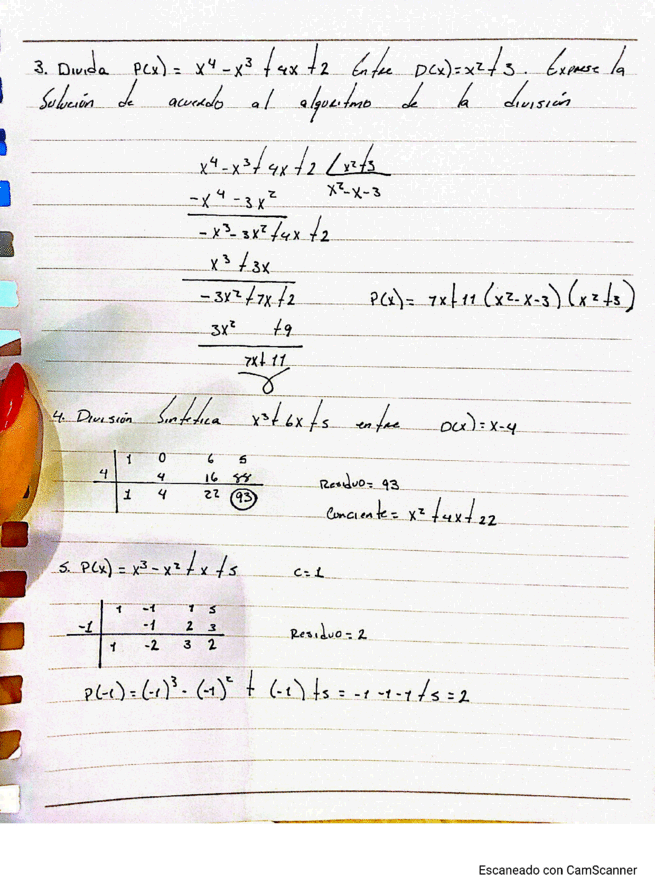 3. Divida P(x) = x⁴ - x³ + 4x + 2 Entre D(x) = x² + 3. Exprese la
Solución de acuerdo al algoritmo de la división
x⁴ - x³ + 4x + 2 (x² + 3
-x⁴ - 3x² x² - x - 3
-x³ - 3x² + 4x + 2
x³ + 3x
-3x² + 7x + 2 P(x) = 7x + 11 (x² - x - 3) (x² + 3)
3x² + 9
7x + 11
4. División Sintetica x³ + 6x + 5 entre D(x) = x - 4
1 0 6 5
4 4 16 88 Residuo = 93
1 4 22 93
Conciente = x² + 4x + 22
5. P(x) = x³ - x² + x + 5 C = 1
1 -1 1 5
-1 -1 2 3 Residuo = 2
1 -2 3 2
P(-1) = (-1)³ - (-1)² + (-1) + 5 = -1 -1 -1 + 5 = 2
Escaneado con CamScanner